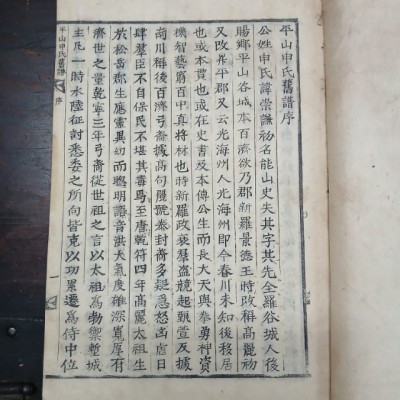 平山申氏舊譜序
公姓申氏諱崇謙初名能山史失其字其先全羅谷城人後
賜鄉平山谷城本百濟欲乃郡新羅景德王時改稱高麗初
又改昇平郡又云光海州人光海州即今春川未知後移居
也本貫也或在史書及本傳公生而長大天與拳勇神資
機智藝窮百中真將材也時新羅政衰羣盜競起甄萱反據
川稱後百濟弓裔據高句麗號泰封裔多疑怒凶虐日
肆羣臣不自保民不堪其毒焉至唐乾符四年高麗太祖生
於松岳郡生應靈異幼而聰明語音洪大氣度雄深寬厚有
濟世之量乾寧三年弓裔從世祖之言以太祖爲勃禦塹城
主凡一時水陸征討悉委之所向皆克以功累遷爲侍中位
平山申氏舊譜 序 一